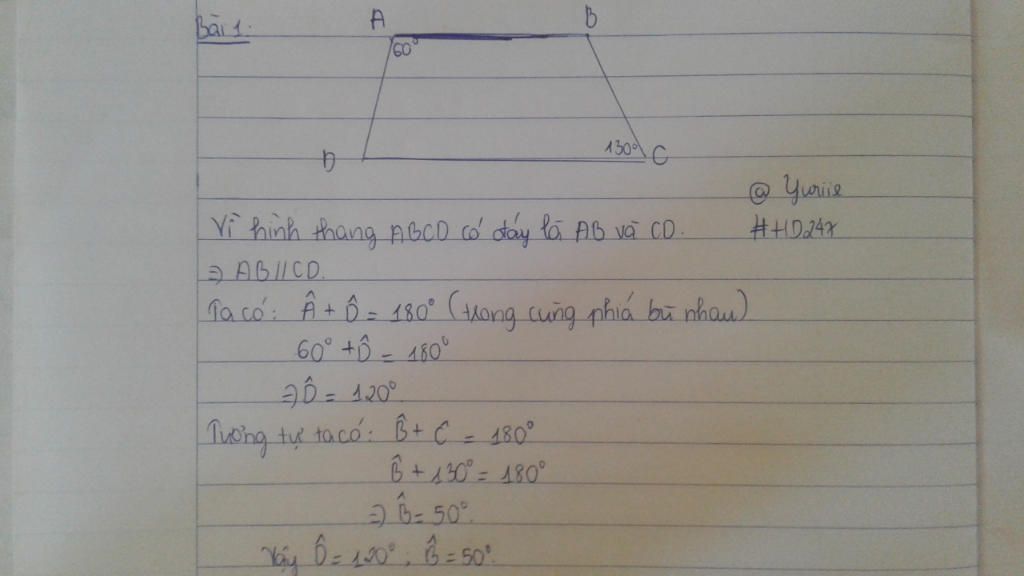 Bài 1:
A B
60°
D 130° C
@ Yuriie
Vì hình thang ABCD có đáy là AB và CD. #HD247
=> AB//CD.
Ta có: Â + D̂ = 180° (trong cùng phiá bù nhau)
60° + D̂ = 180°
=> D̂ = 120°.
Tương tự ta có: B̂ + C = 180°
B̂ + 130° = 180°
=> B̂ = 50°.
Vậy D̂ = 120° ; B̂ = 50°.